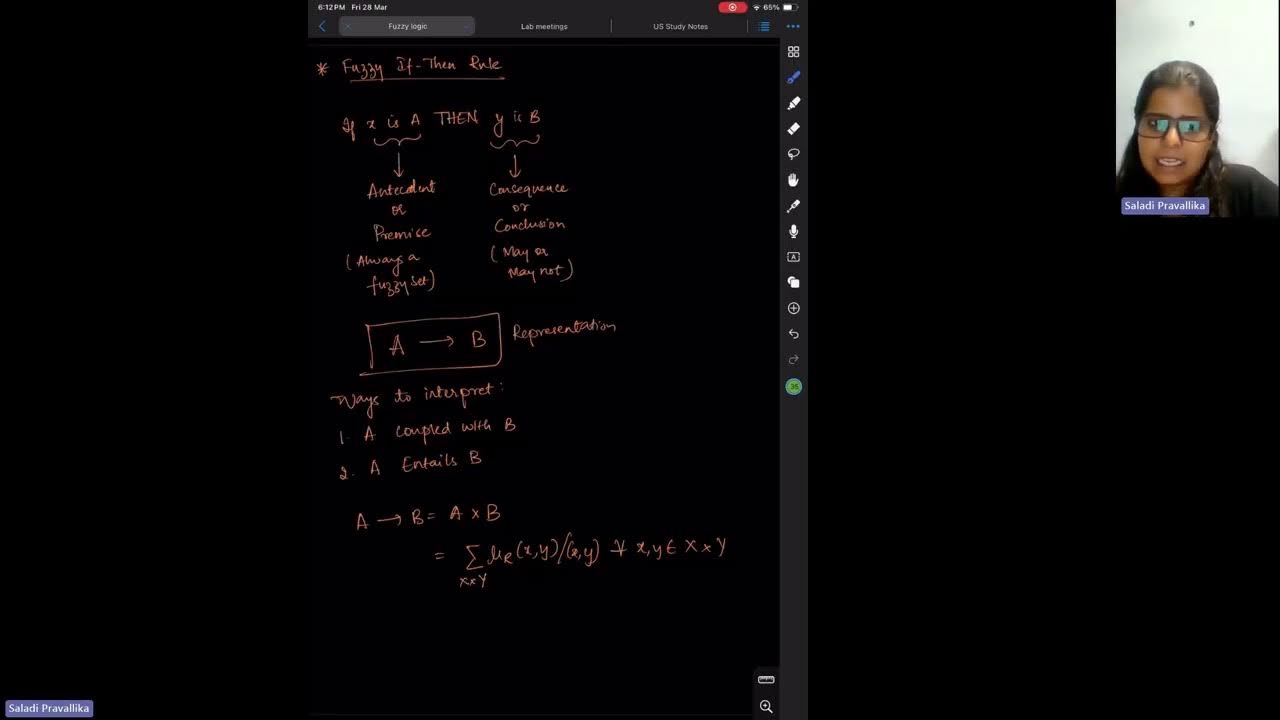 6:12 PM Fri 28 Mar
65%
Fuzzy logic
Lab meetings
US Study Notes
* Fuzzy If-Then Rule
If x is A THEN y is B
Antecedent
or
Premise
(Always a
fuzzy set)
Consequence
or
Conclusion
(May or
May not)
A → B Representation
Ways to interpret:
1. A coupled with B
2. A Entails B
A → B = A × B
= ∑ μR(x,y)/(x,y) ∀ x,y ∈ X × Y
X×Y
A
35
Saladi Pravallika
Saladi Pravallika